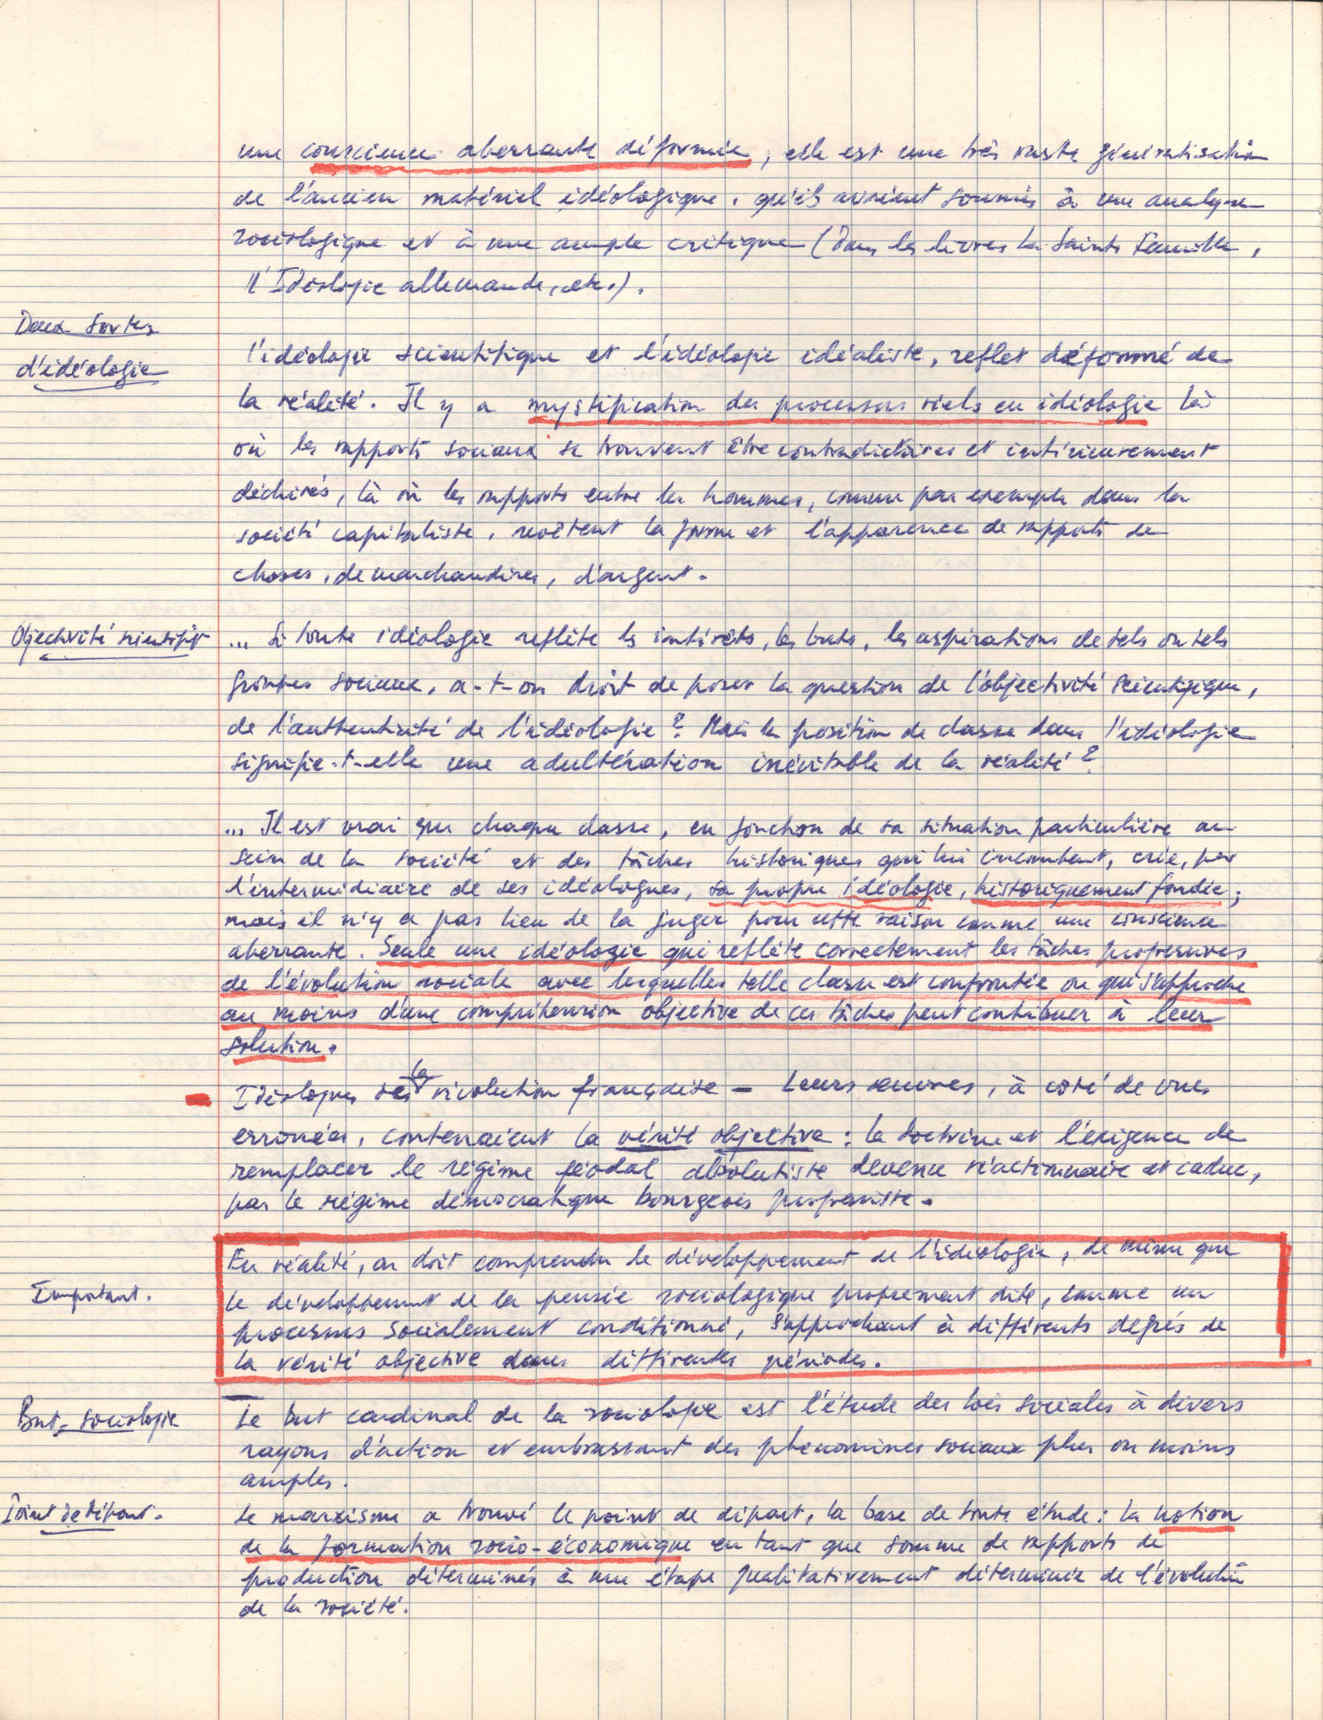 une conscience aberrante déformée, elle est une très vaste généralisation
de l'ancien matériel idéologique, qu'ils avaient soumis à une analyse
sociologique et à une ample critique (dans les livres La Sainte Famille,
l'Idéologie allemande, etc.).
Deux sortes
d'idéologie
l'idéologie scientifique et l'idéologie idéaliste, reflet déformé de
la réalité. Il y a mystification des processus réels en idéologie là
où les rapports sociaux se trouvent être contradictoires et intérieurement
déchirés, là où les rapports entre les hommes, comme par exemple dans la
société capitaliste, revêtent la forme et l'apparence de rapports de
choses, de marchandises, d'argent.
Objectivité scientifiq
... Si toute idéologie reflète les intérêts, les buts, les aspirations de tels ou tels
groupes sociaux, a-t-on droit de poser la question de l'objectivité scientifique,
de l'authenticité de l'idéologie? Mais la position de classe dans l'idéologie
signifie-t-elle une adultération inévitable de la réalité?
... Il est vrai que chaque classe, en fonction de sa situation particulière au
sein de la société et des tâches historiques qui lui incombent, crée, par
l'intermédiaire de ses idéologues, sa propre idéologie, historiquement fondée;
mais il n'y a pas lieu de la juger pour cette raison comme une conscience
aberrante. Seule une idéologie qui reflète correctement les tâches progressives
de l'évolution sociale avec lesquelles telle classe est confrontée ou qui s'approche
au moins d'une compréhension objective de ces tâches peut contribuer à leur
solution.
Idéologues de la révolution française – Leurs œuvres, à coté de vues
erronées, contenaient la vérité objective: la doctrine et l'exigence de
remplacer le régime féodal absolutiste devenu réactionnaire et caduc,
par le régime démocratique bourgeois progressiste.
Important.
En réalité, on doit comprendre le développement de l'idéologie, de même que
le développement de la pensée sociologique proprement dite, comme un
processus socialement conditionné, s'approchant à différents degrés de
la vérité objective dans différentes périodes.
But, sociologie
Le but cardinal de la sociologie est l'étude des lois sociales à divers
rayons d'action et embrassant des phénomènes sociaux plus ou moins
amples.
Point de départ.
Le marxisme a trouvé le point de départ, la base de toute étude: la notion
de la formation socio-économique en tant que somme de rapports de
production déterminés à une étape qualitativement déterminée de l'évolution
de la société.